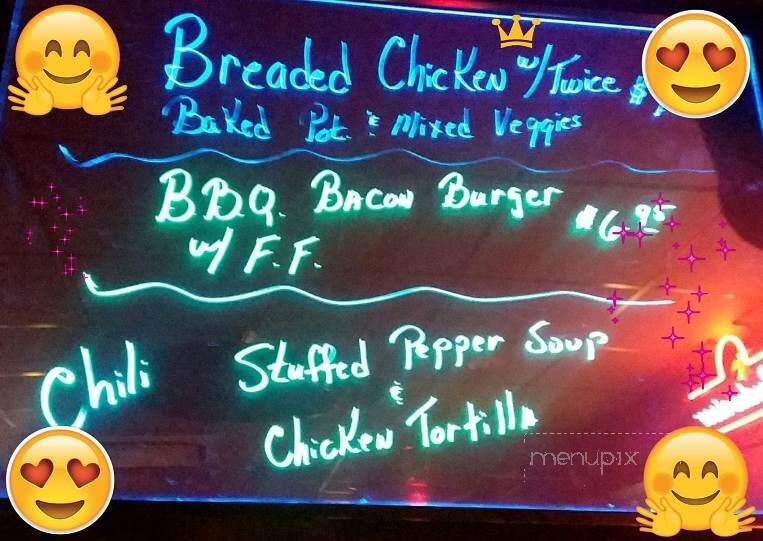 Breaded Chicken w/ Twice $
Baked Pot. & Mixed Veggies
BBQ. Bacon Burger $6.95
w/ F.F.
Chili Stuffed Pepper Soup
&
Chicken Tortilla
menupix